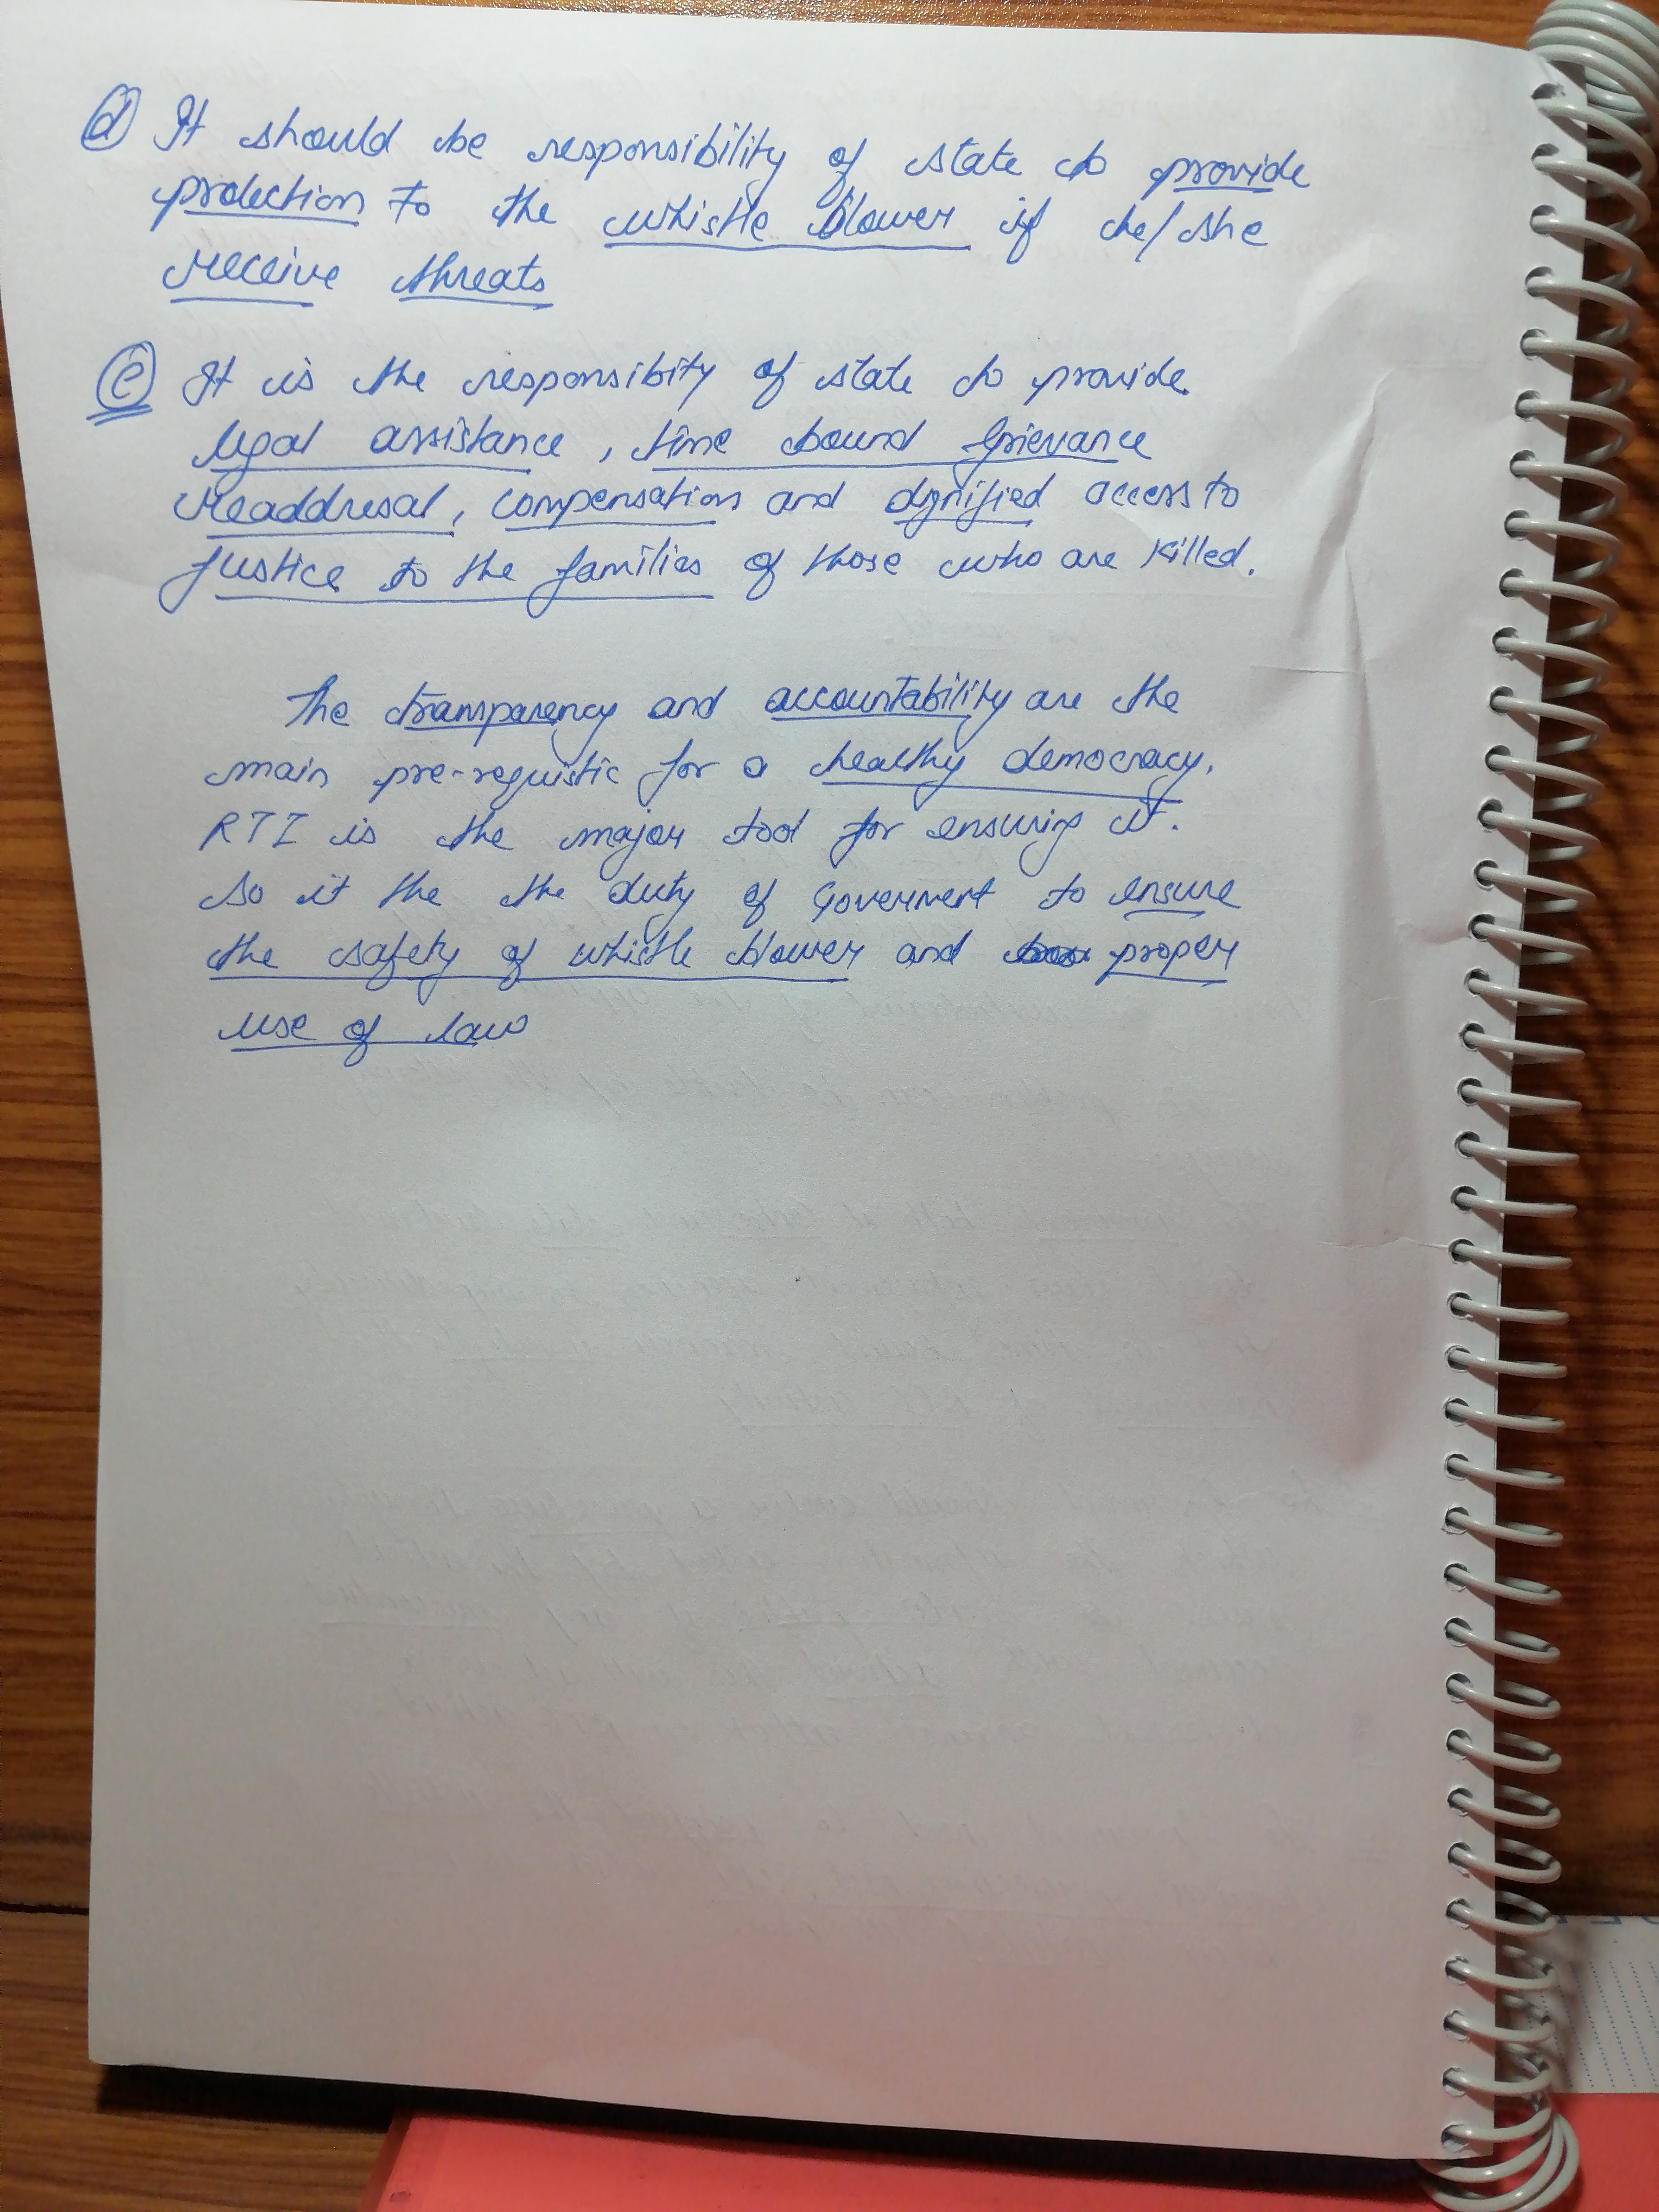 d It should be responsibility of state to provide
protection to the whistle blower if he/she
receive threats
e It is the responsibity of state to provide
legal assistance, time bound Grievance
readdresal, compensation and dignified access to
Justice to the families of those who are killed.
The transparency and accountability are the
main pre-requistic for a healthy democracy.
RTI is the major tool for ensuring it.
So it the the duty of Goverment to ensure
the safety of whistle blower and proper
use of law